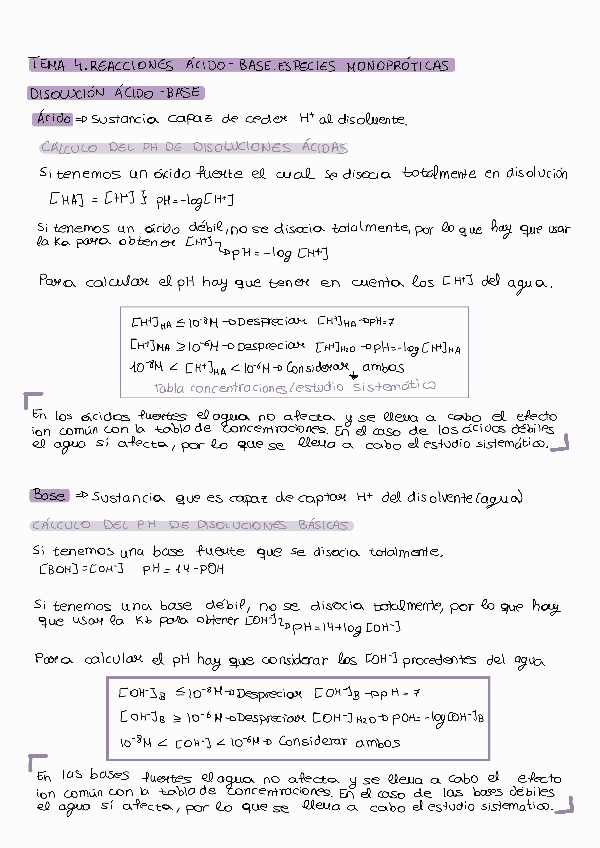 TEMA 4. REACCIONES ÁCIDO-BASE. ESPECIES MONOPRÓTICAS
DISOLUCIÓN ÁCIDO-BASE
Ácido ⇒ Sustancia capaz de ceder H⁺ al disolvente.
CÁLCULO DEL PH DE DISOLUCIONES ÁCIDAS
Si tenemos un ácido fuerte el cual se disocia totalmente en disolución
[HA] = [H⁺] } pH=-log[H⁺]
Si tenemos un ácido débil, no se disocia totalmente, por lo que hay que usar
la Ka para obtener [H⁺]
↳pH=-log [H⁺]
Para calcular el pH hay que tener en cuenta los [H⁺] del agua.
[H⁺]HA ≤ 10⁻⁸M → Despreciar [H⁺]HA → pH=7
[H⁺]HA ≥ 10⁻⁶M → Despreciar [H⁺]H₂O → pH=-log[H⁺]HA
10⁻⁸M < [H⁺]HA < 10⁻⁶M → Considerar ambos
Tabla concentraciones/estudio sistemático
En los ácidos fuertes el agua no afecta y se lleva a cabo el efecto
ion común con la tabla de concentraciones. En el caso de los ácidos débiles
el agua sí afecta, por lo que se lleva a cabo el estudio sistemático.
Base ⇒ Sustancia que es capaz de captar H⁺ del disolvente (agua)
CÁLCULO DEL PH DE DISOLUCIONES BÁSICAS
Si tenemos una base fuerte que se disocia totalmente.
[BOH]=[OH⁻] pH=14-pOH
Si tenemos una base débil, no se disocia totalmente, por lo que hay
que usar la Kb para obtener [OH⁻] ↳pH=14+log[OH⁻]
Para calcular el pH hay que considerar los [OH⁻] procedentes del agua
[OH⁻]B ≤ 10⁻⁸M → Despreciar [OH⁻]B → pH=7
[OH⁻]B ≥ 10⁻⁶M → Despreciar [OH⁻]H₂O → pOH=-log[OH⁻]B
10⁻⁸M < [OH⁻] < 10⁻⁶M → Considerar ambos
En las bases fuertes el agua no afecta y se lleva a cabo el efecto
ion común con la tabla de concentraciones. En el caso de las bases débiles
el agua sí afecta, por lo que se lleva a cabo el estudio sistemático.